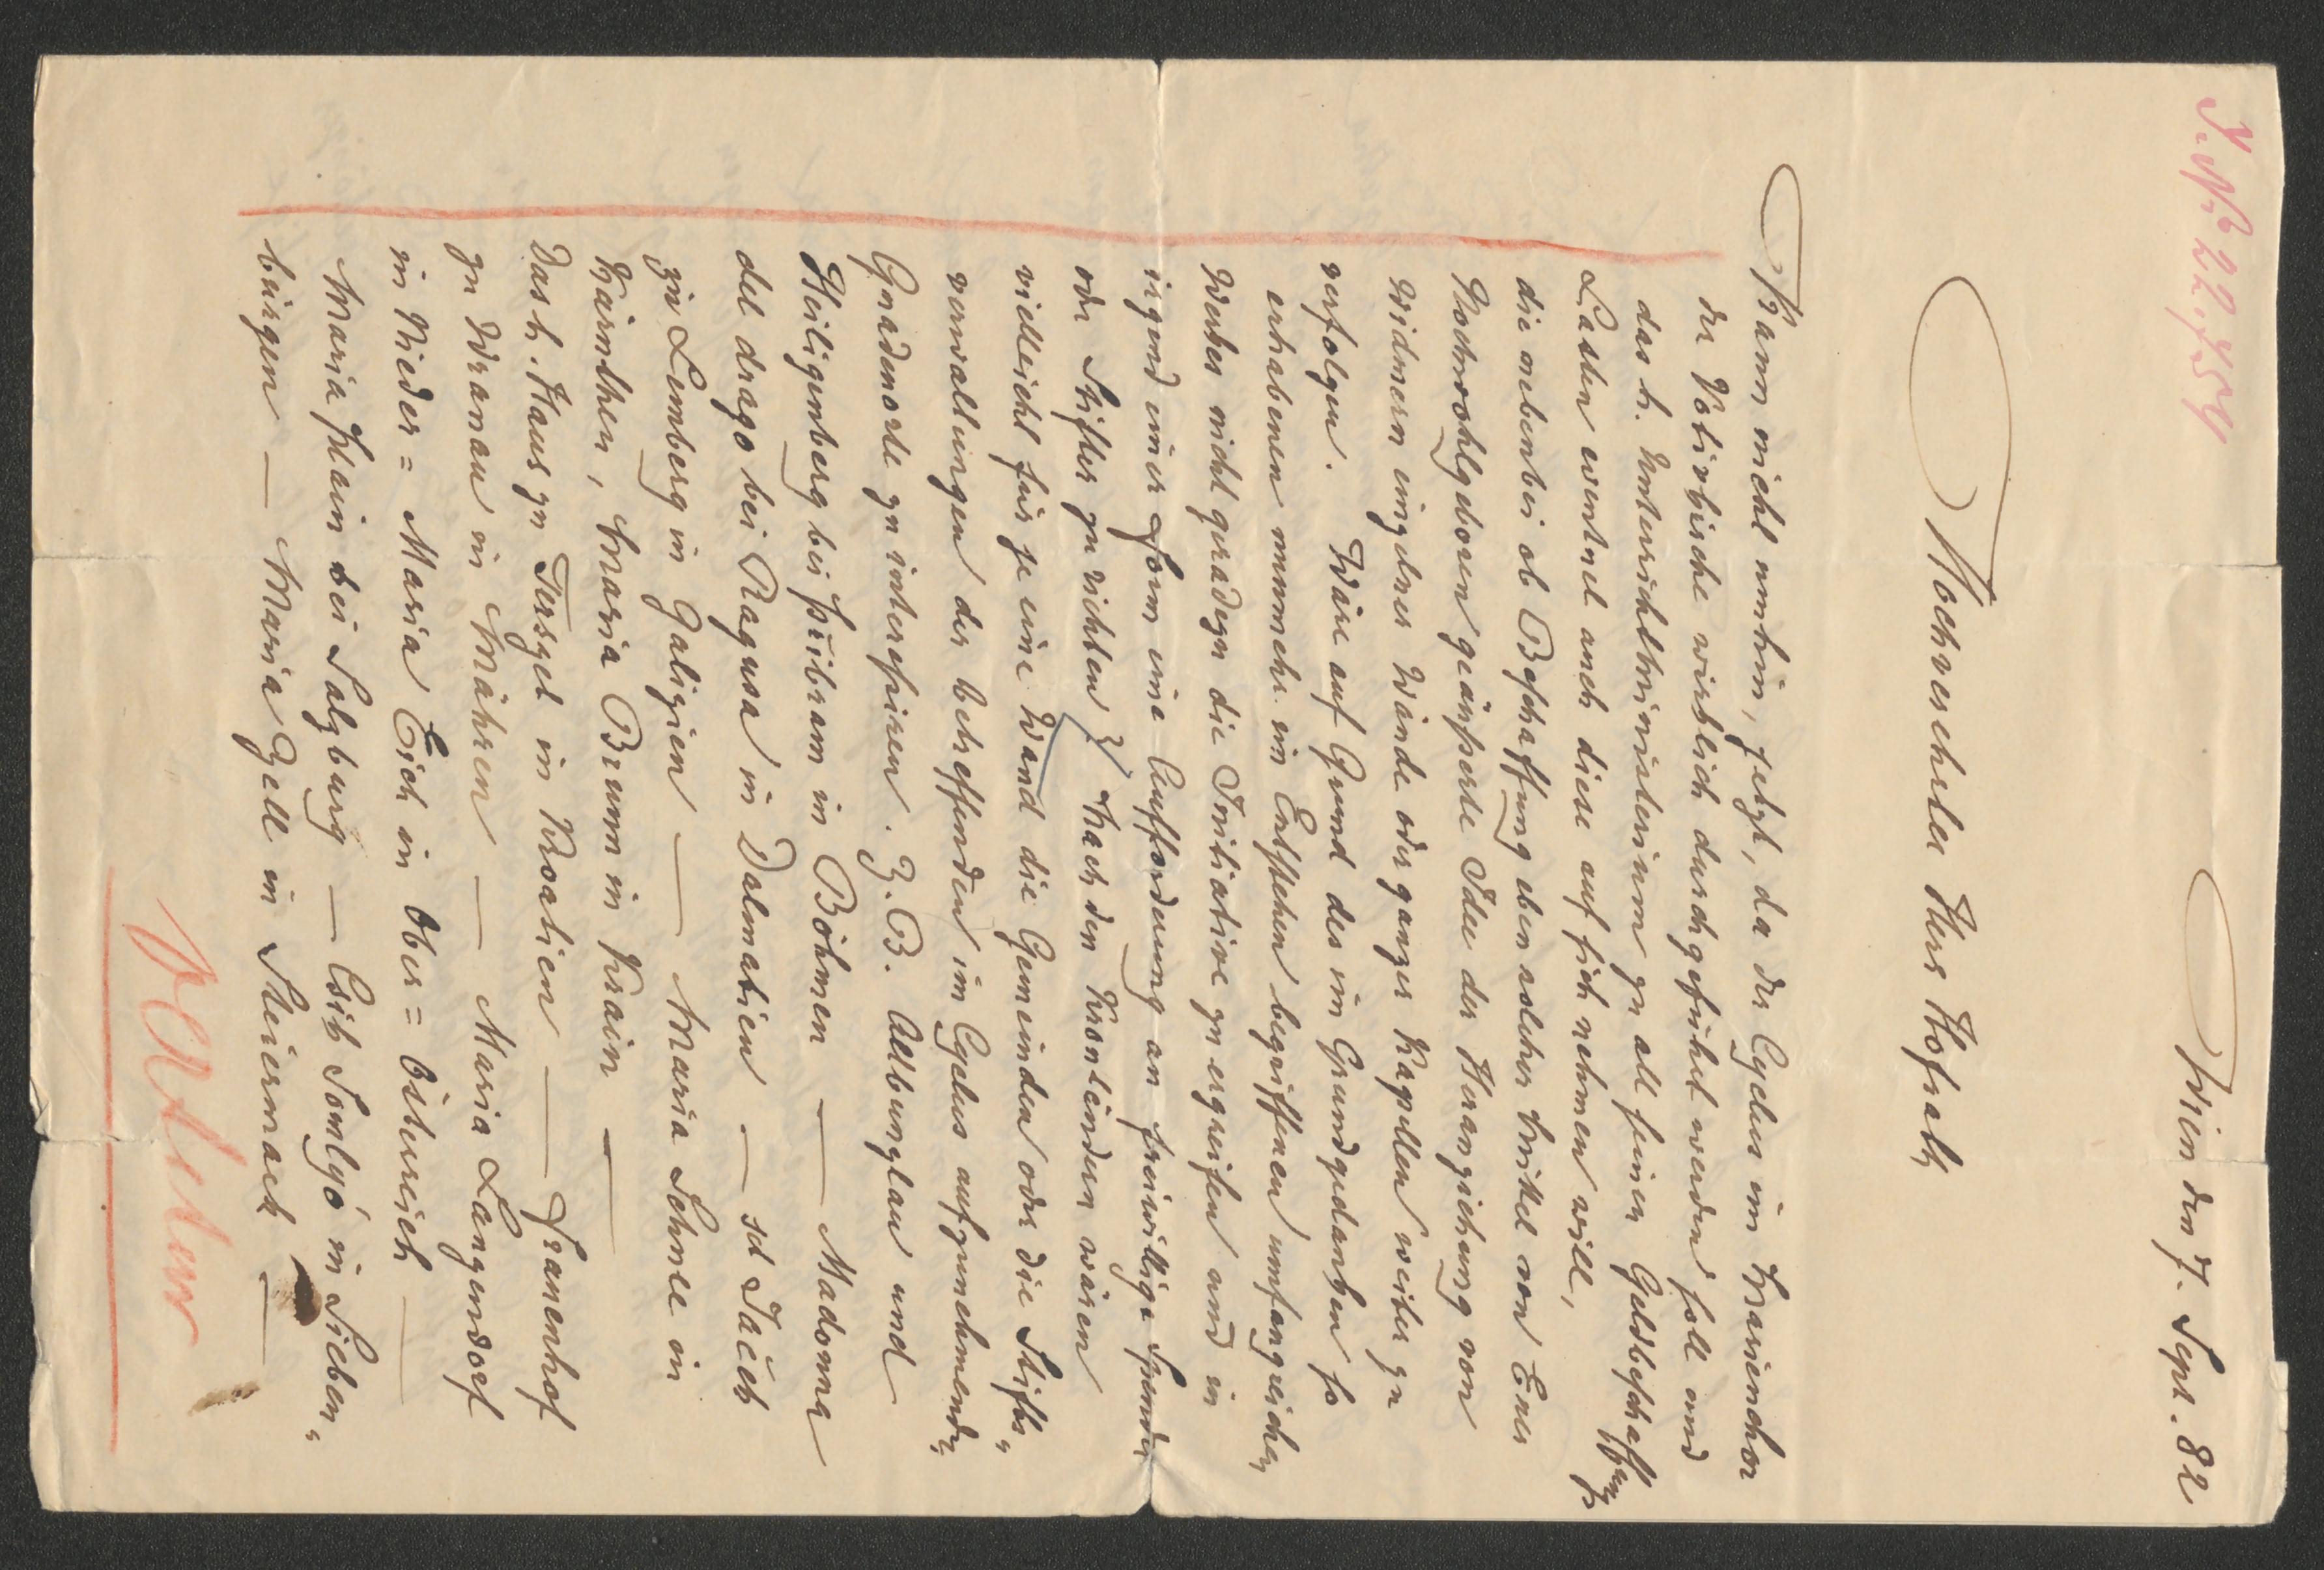 J. Nr 22,754
Wien den 7. Sept. 82
Hochverehrter Herr Hofrath
Kann nicht umhin, jetzt, da der Cyclus im Frauenchor
der Votivkirche wirklich durchgeführt werden soll und
das h. Unterrichtsministerium zu all seinen Geldbeschaffungs
Lasten eventuel auch diese auf sich nehmen will,
die nebenbei ob Beschaffung eben solcher Mittel von Euer
Hochwohlgeboren geäußerte Idee der Heranziehung von
Widmern einzelner Wände oder ganzer Kapellen weiter zu
verfolgen. Wäre auf Grund des im Grundgedanken so
erhabenen nunmehr im Entstehen begriffenen umfangreichen
Werkes nicht geradezu die Initiative zu ergreifen und in
irgend einer Form eine Aufforderung an freiwillige Spender
oder Stifter zu richten? Nach den Kronländern wären
vielleicht für je eine Wand die Gemeinden oder die Stifts-
verwaltungen der betreffenden im Cyclus aufzunehmenden
Gnadenorte zu interessiren. Z. B. Altbunzlau und
Heiligenberg bei Přibram in Böhmen — Madonna
del drago bei Ragusa in Dalmatien — sd Jacob
zu Lemberg in Galizien — Maria Schnee in
Kärnthen, Maria Brunn in Krain —
Das h. Haus zu Tersgel in Kroatien — Franenhof
zu Wranau in Mähren — Maria Langendorf
in Nieder= Maria Eich in Ober=Östereich —
Maria Plain bei Salzburg — Csik Somlyó in Sieben-
bürgen — Maria Zell in Steiermark —